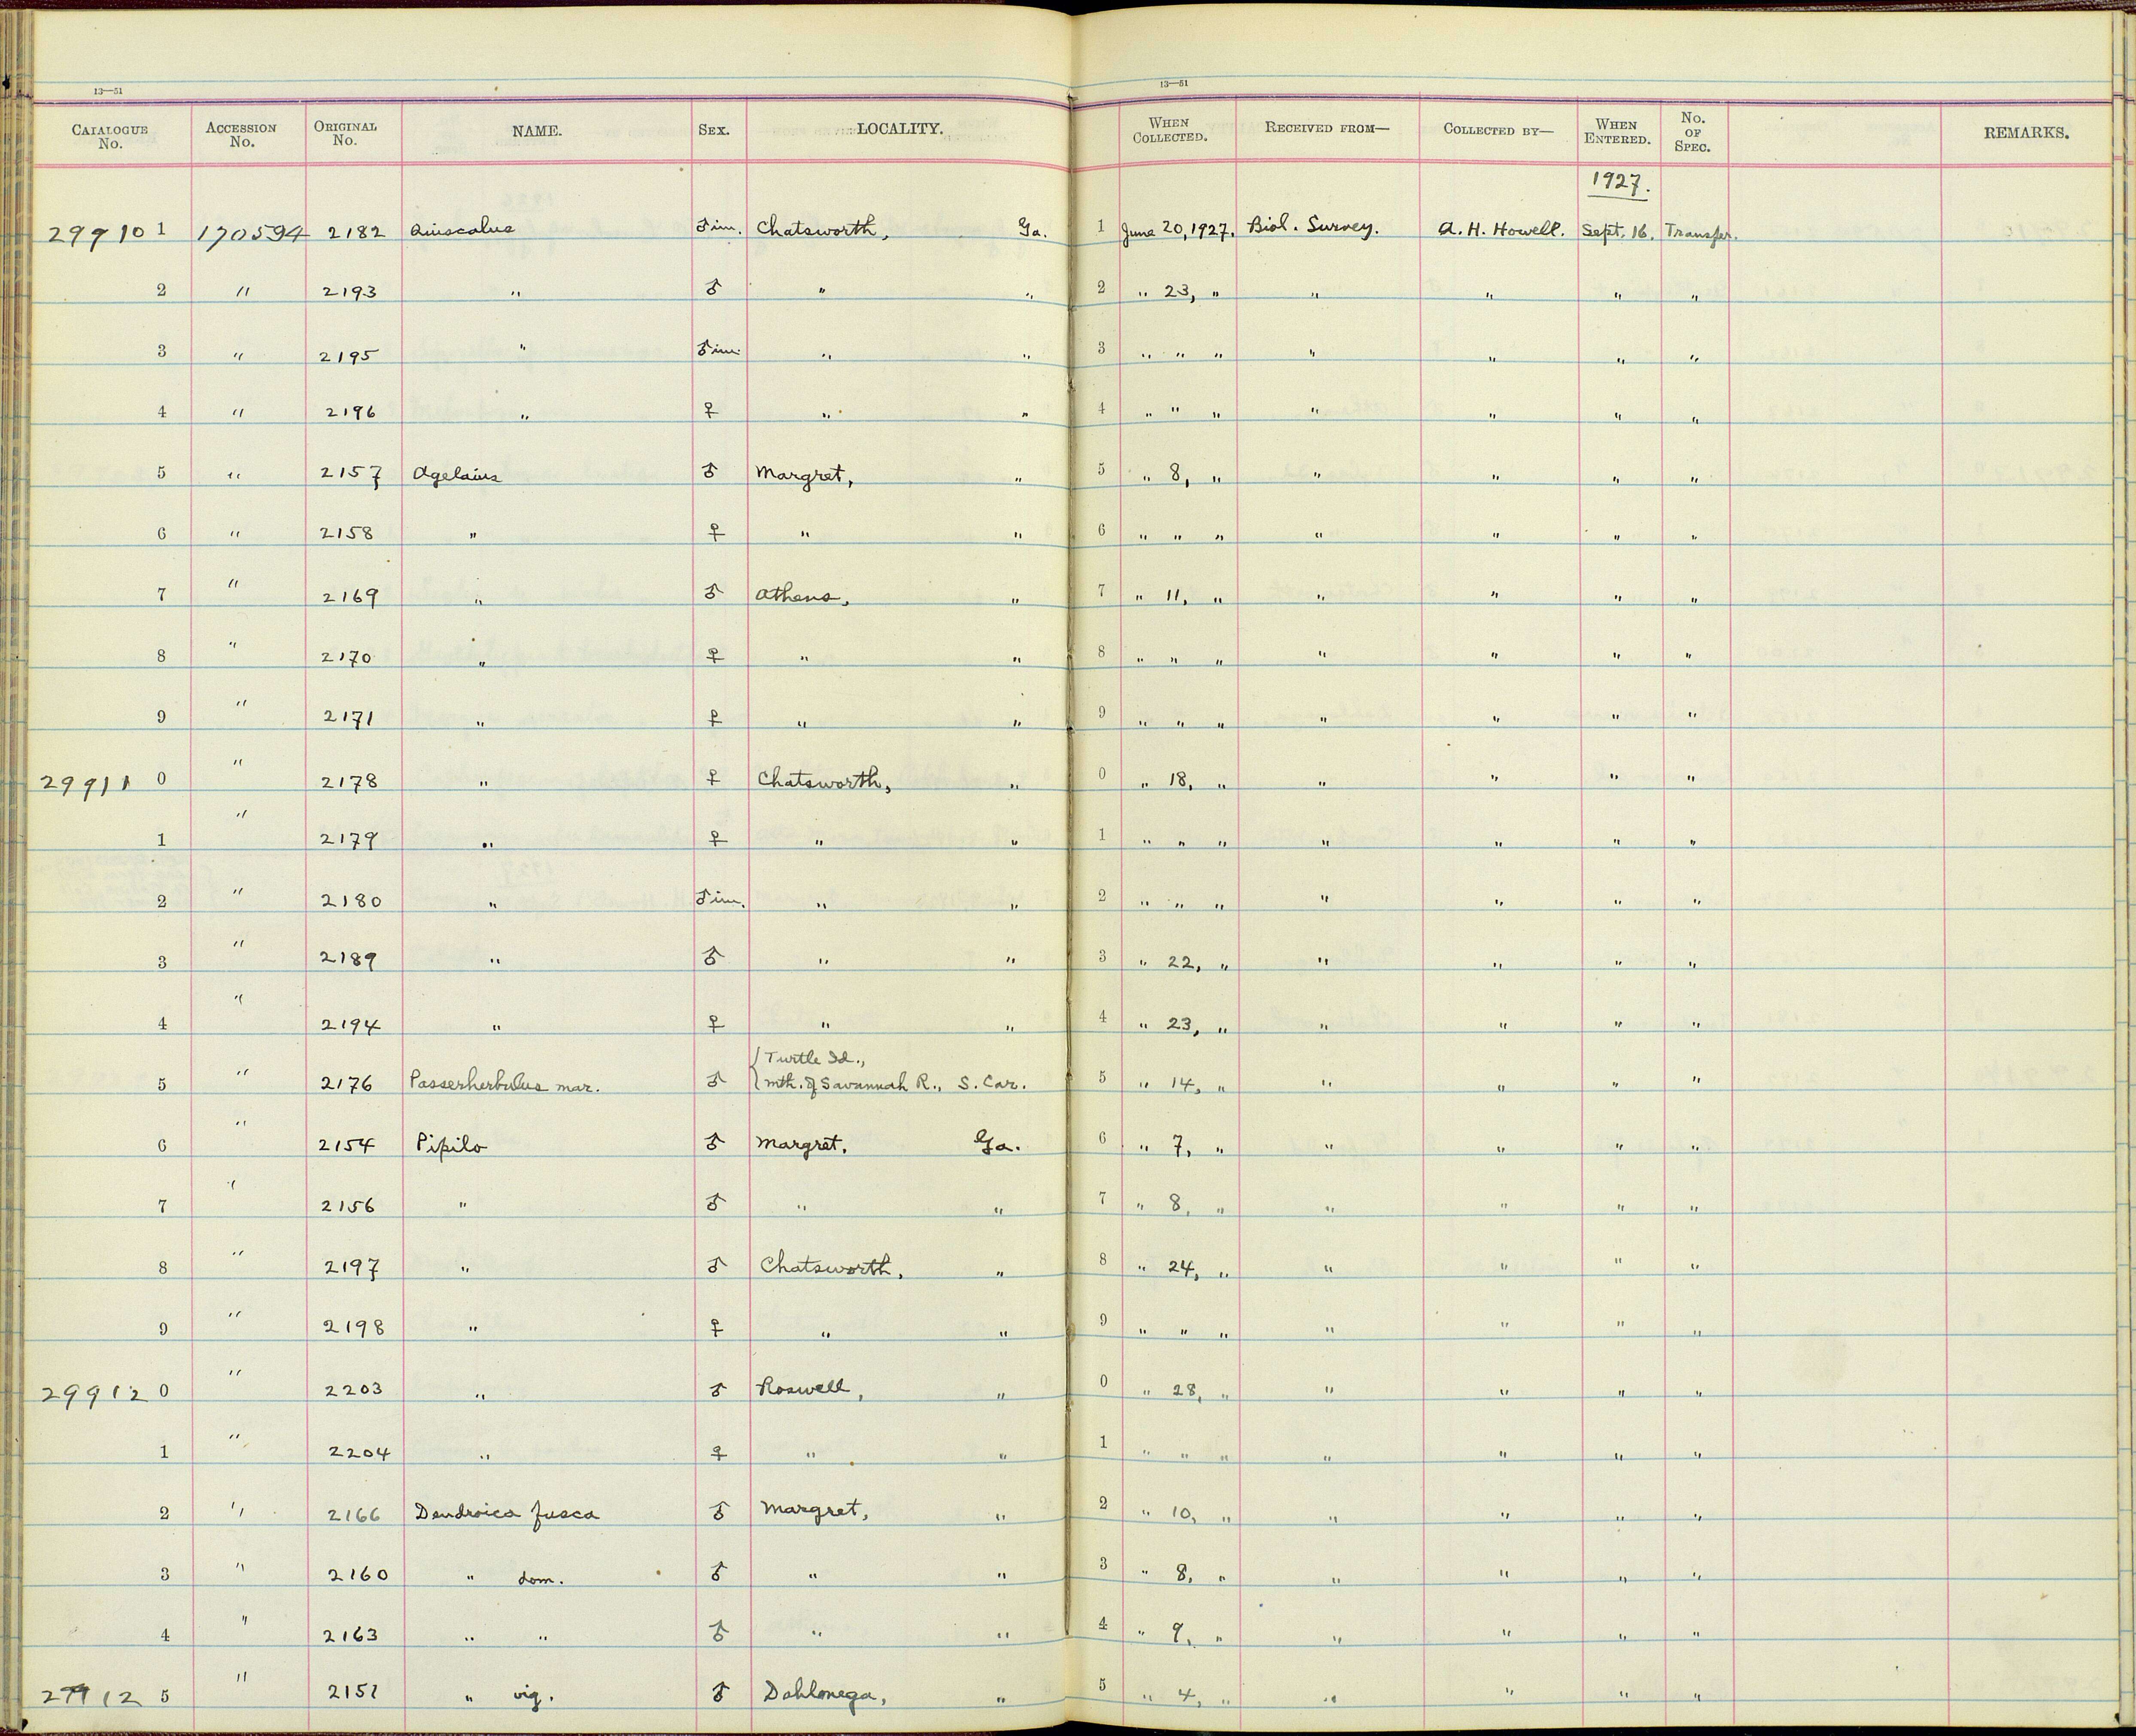 13—51 13—51
CATALOGUE No. ACCESSION No. ORIGINAL No. NAME. SEX. LOCALITY. WHEN COLLECTED. RECEIVED FROM— COLLECTED BY— WHEN ENTERED. No. OF SPEC. REMARKS.
1927.
29910 1 170594 2182 Quiscalus ♂ im. Chatsworth, Ga. 1 June 20, 1927. Biol. Survey. A. H. Howell. Sept. 16. Transfer.
2 " 2193 " ♂ " " 2 " 23, " " " " "
3 " 2195 " ♂ im. " " 3 " " " " " " "
4 " 2196 " ♀ " " 4 " " " " " " "
5 " 2157 Agelaius ♂ Margret, " 5 " 8, " " " " "
6 " 2158 " ♀ " " 6 " " " " " " "
7 " 2169 " ♂ Athens, " 7 " 11, " " " " "
8 " 2170 " ♀ " " 8 " " " " " " "
9 " 2171 " ♀ " " 9 " " " " " " "
29911 0 " 2178 " ♀ Chatsworth, " 0 " 18, " " " " "
1 " 2179 " ♀ " " 1 " " " " " " "
2 " 2180 " ♂ im. " " 2 " " " " " " "
3 " 2189 " ♂ " " 3 " 22, " " " " "
4 " 2194 " ♀ " " 4 " 23, " " " " "
Turtle Id.,
5 " 2176 Passerherbulus mar. ♂ mth. of Savannah R., S. Car. 5 " 14, " " " " "
6 " 2154 Pipilo ♂ Margret, Ga. 6 " 7, " " " " "
7 " 2156 " ♂ " " 7 " 8, " " " " "
8 " 2197 " ♂ Chatsworth, " 8 " 24, " " " " "
9 " 2198 " ♀ " " 9 " " " " " " "
29912 0 " 2203 " ♂ Roswell, " 0 " 28, " " " " "
1 " 2204 " ♀ " " 1 " " " " " " "
2 " 2166 Dendroica fusca ♂ Margret, " 2 " 10, " " " " "
3 " 2160 " dom. ♂ " " 3 " 8, " " " " "
4 " 2163 " " ♂ " " 4 " 9, " " " " "
29912 5 " 2151 " vig. ♂ Dahlonega, " 5 " 4, " " " " "